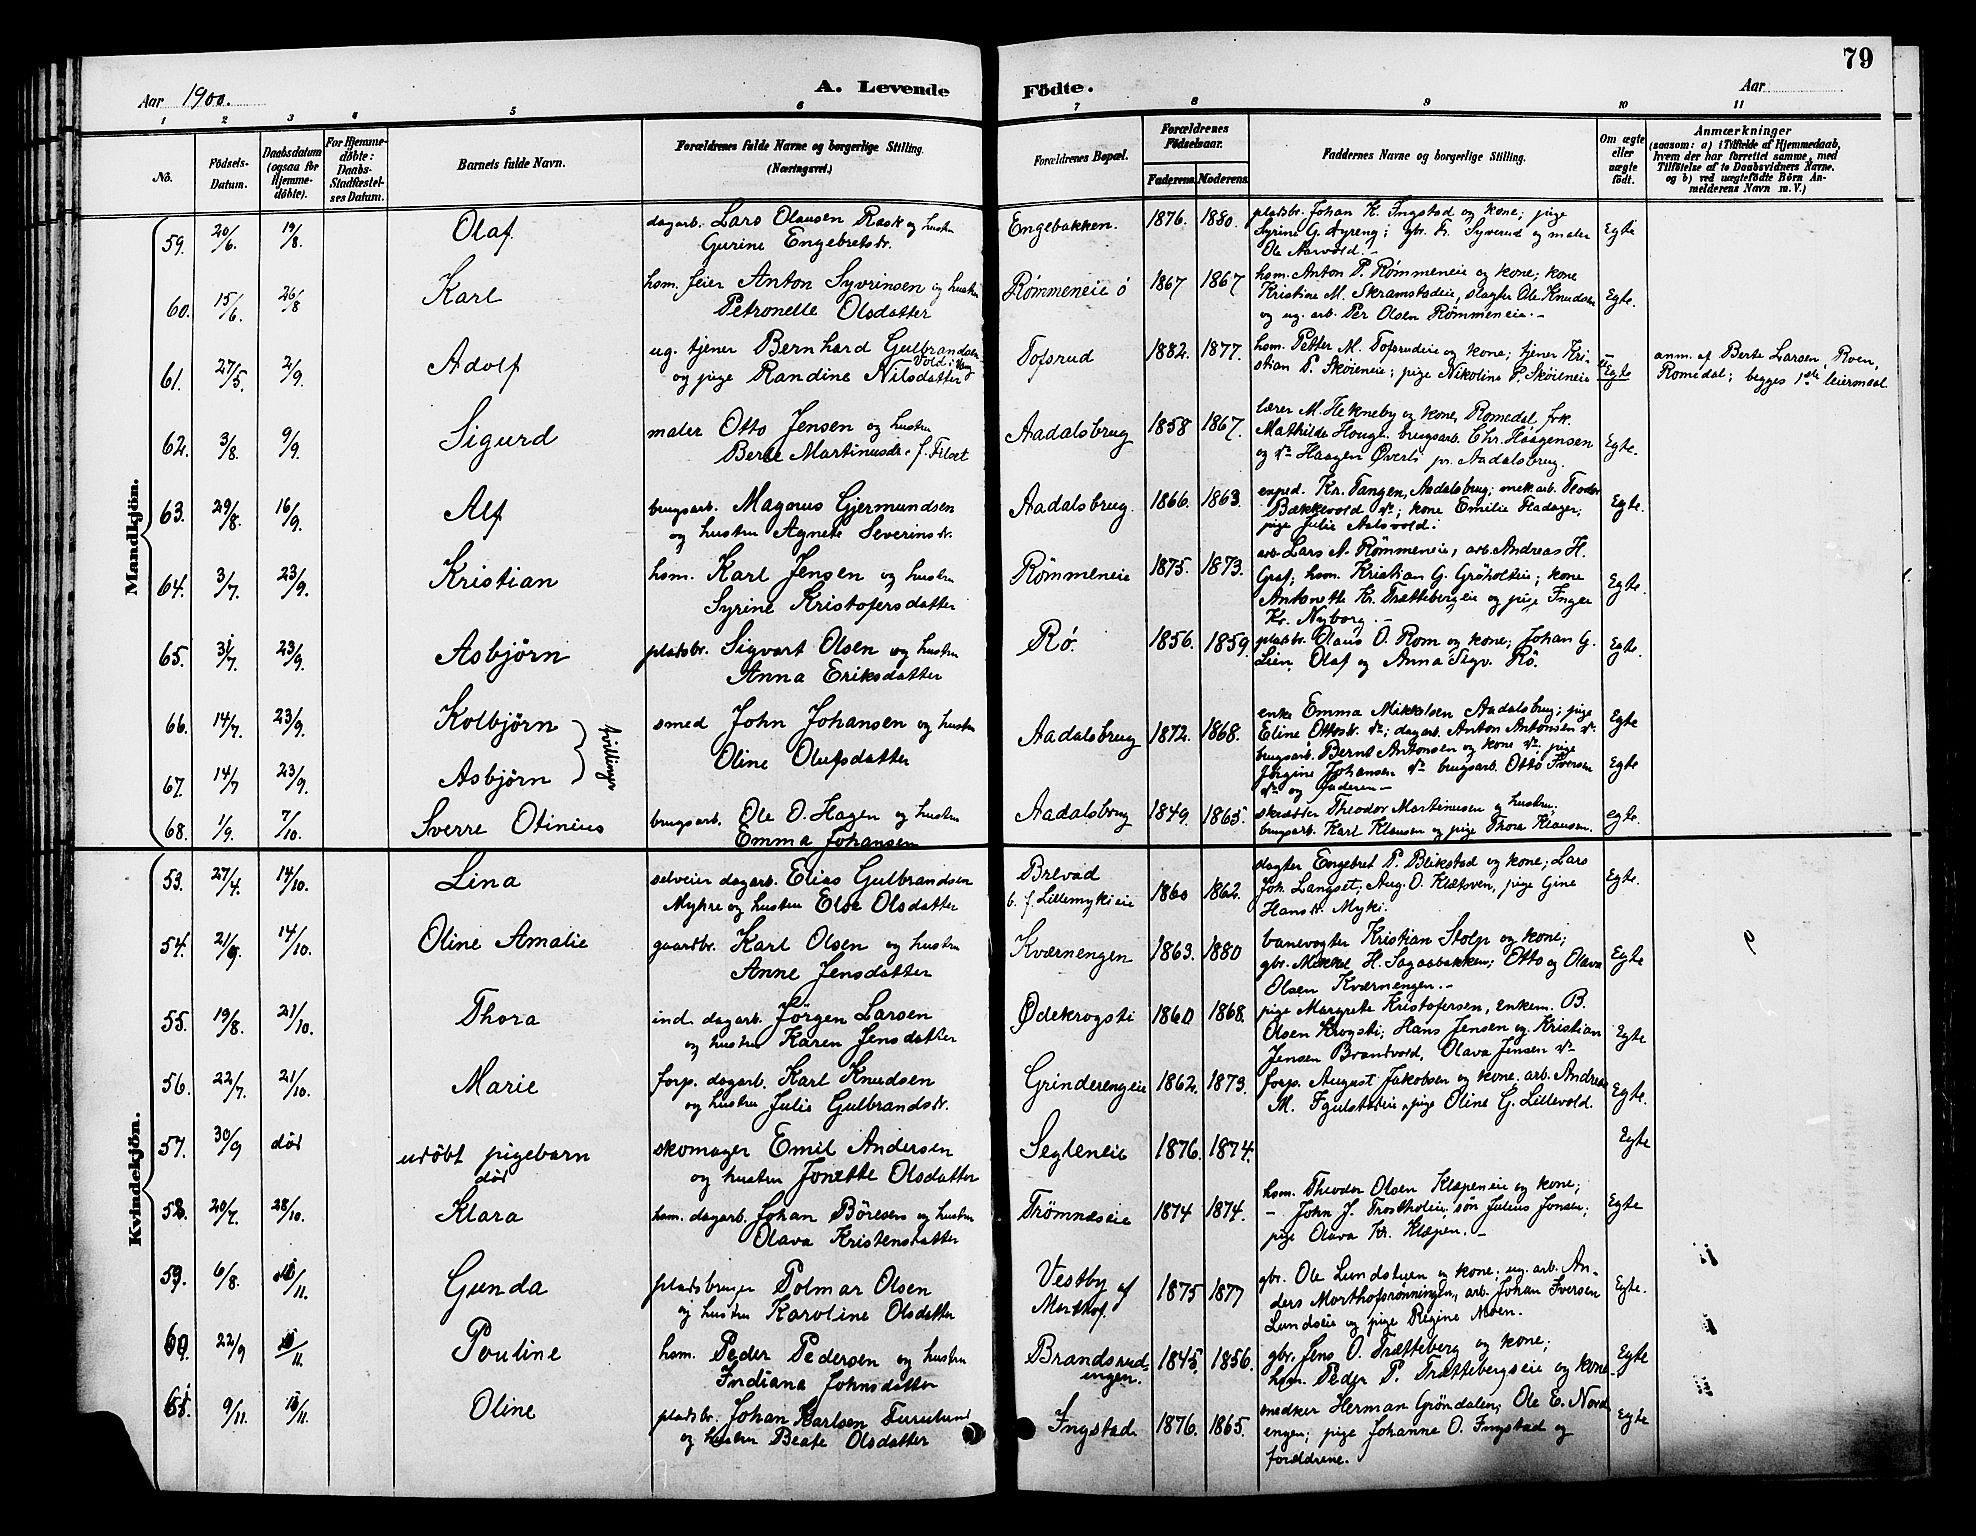 79
Aar 1900.
A. Levende Födte.
Aar
1 2 3 4 5 6 7 8 9 10 11
No.
Födsels-Datum.
Daabsdatum (ogsaa for Hjemme-döbte).
For Hjemme-döbte: Daabs-Stadfæstel-ses Datum.
Barnets fulde Navn.
Forældrenes fulde Navne og borgerlige Stilling. (Næringsvei.)
Forældrenes Bopæl.
Forældrenes Födselsaar.
Faderens. Moderens.
Faddernes Navne og borgerlige Stilling.
Om ægte eller uægte födt.
Anmærkninger
(saasom: a) i Tilfælde af Hjemmedaab, hvem der har forrettet samme, med Tilföielse af to Daabsvidners Navne. og b) ved uægtefödte Börn Anmelderens Navn m. V.)
Mandkjön.
59. 20/6. 19/8. Olaf dagarb. Lars Olausen Rask og hustru Engebakken. 1876. 1880. pladsbr. Johan K. Ingstad og kone; pige Egte
Gurine Engebretsdr. Syrine G. Dyreng; gbr. Fr. Syverud og maler
Ole Narvold.-
60. 15/6. 26/8 Karl hsm. feier Anton Syvrinsen og hustru Rømmeneie ö 1867 1867 hsm. Anton P. Rømmeneie og kone; kone Egte.
Petronelle Olsdatter Kristine M. Skramstadeie, slagter Ole Knudsen
og ug. arb. Per Olsen Rømmeneie.-
61. 27/5. 2/9. Adolf ug. tjener Bernhard Gulbrandsen Tofsrud 1882. 1877. hsm. Petter M. Tofsrudeie og kone; tjener Kri- Egte anm. af Berte Larsen, Roen,
Vold i Vang
og pige Randine Nilsdatter stian P. Skøieneie; pige Nikoline P. Skøieneie Romedal; begges 1ste leiermaal
62. 3/8. 9/9. Sigurd maler Otto Jensen og hustru Aadalsbrug 1858 1867. lærer M. Hekneby og kone, Romedal, frk. Egte.
Berte Martinusdr. f. Filset Mathilde Houge. brugsarb. Chr. Haagensen
og Haagen Øverli pr. Aadalsbrug.
63. 29/8. 16/9. Alf brugsarb. Magnus Gjermundsen Aadalsbrug. 1866. 1863. exped. Kr. Tangen, Aadalsbrug; mek. arb. Teodor Egte.
og hustru Agnete Severinsdr. Bækkevold; kone Emilie Fladager;
pige Julie Aalsvold.
64. 3/7. 23/9. Kristian hsm. Karl Jensen og hustru Rømmeneie 1875. 1873. arb. Lars A. Rømmeneie, arb. Andreas H. Egte.
Syrine Kristofersdatter Graf; hsm. Kristian G. Grøholteie; kone
Antonette Kr. Trættebergeie og pige Inger
Kr. Nyborg.-
65. 31/7. 23/9. Asbjörn pladsbr. Sigvart Olsen og hustru Rö. 1856. 1859. pladsbr. Olaus O. Rom og kone; Johan G. Egte.
Anna Eriksdatter Lien, Olaf og Anna Sigv. Rö.
66. 14/7. 23/9. Kolbjörn smed John Johansen og hustru Aadalsbrug 1872. 1868. enke Emma Mikkelsen Aadalsbrug; pige Egte
tvillinger Oline Olufsdatter Eline Ottosdr.; dagarb. Anton Antonsen
67. 14/7 23/9. Asbjörn brugsarb. Bernt Antonsen og kone, pige Egte
Jørgine Johansen brugsarb. Otto Iversen
og faderen-
68. 1/9. 7/10. Sverre Otinius brugsarb. Ole O. Hagen og hustru Aadalsbrug 1849. 1865. skrædder Theodor Martinusen og hustru. egte.
Emma Johansen brugsarb. Karl Klausen og pige Thora Klausen.
Kvindekjön.
53. 27/4. 14/10. Lina selveier dagarb. Elias Gulbrandsen Brevad 1860 1862. Engebret P. Blikstad og kone; Lars Egte.
Myhre og hustru Else Olsdatter b. f. Lillemykieie Joh. Langset, Aug. O. Kletsven, pige Gine
Hansdr. Myki.
54. 21/9. 14/10. Oline Amalie gaardbr. Karl Olsen og hustru Kværnengen 1863. 1880 banevogter Kristian Stolp og kone; Egte
Anne Jensdatter gbr. Mikkel H. Sagaabakken; Otto og Olava
Olsen Kværnengen.-
55. 19/8. 21/10. Thora ind. dagarb. Jörgen Larsen Ødekrogsti 1860 1868. pige Margrete Kristofersen, enkem. B. Egte
og hustru Karen Jensdatter Olsen Krogsti; Hans Jensen og Kristian
Jensen Brandvold, Olava Jensen
56. 22/7. 21/10. Marie forp. dagarb. Karl Knudsen Grinderengeie 1862. 1873. forp. August Jakobsen og kone. arb. Andreas Egte.
og hustru Julie Gulbrandsdr. M. Igulstadeie, pige Oline G. Lillevold.
57. 30/9 död udöbt pigebarn skomager Emil Andersen Segleneie 1876. 1874. Egte
död og hustru Jonette Olsdatter
58. 20/7. 28/10. Klara hsm. dagarb. Johan Böresen og hustru Trömneseie 1874 1874. hsm. Theodor Olsen Klæpeneie og kone; Egte
Olava Kristensdatter - John J. Trostholeie, søn Julius Jonsen;
pige Olava Kr. Klæpen.-
59. 6/8. /11. Gunda pladsbruger Polmar Olsen Vestby af 1875 1877 gbr. Ole Lundstuen og kone; ug. arb. An- Egte.
og hustru Karoline Olsdatter Morthof. ders Morthofsrönningen, arb. Johan Iversen
Lundseie og pige Regine Moen.
60. 22/9 /11. Pouline hsm. Peder Pedersen og hustru Brandsrud- 1845. 1856. gbr. Jens O. Trætteberg og kone; Egte
Indiana Johnsdatter engen. hsm. Peder P. Trættebergseie og kone
9/11. /11. Oline pladsbr. Johan Karlsen Furulund Ingstad 1876. 1865. snedker Herman Gröndalen, Ole E. Nord- Egte
og hustru Beate Olsdatter engen; pige Johanne O. Ingstad og
forældrene.